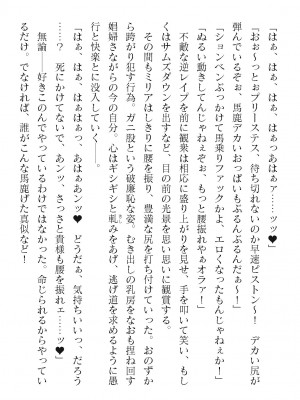 「はぁ、はぁ、はぁはぁ、はぁはぁァーーッッ♥」
「おぉ〜っとぉプリーステス、待ち切れないのか早速ピストン〜！　デカい尻が
弾んでいるぞぉ、馬鹿デカいおっぱいもぶるんぶるんだぁ〜！」
「ションベンぶっかけて馬乗りファックかよ、エロくなったもんじゃねぇか！」
「ぬるい動きしてんじゃねぇぞぉ、もっと腰振れやオラァ！」
　不敵な逆レイプを前に観衆は相応に盛り上がりを見せ、手を叩いて笑い、もし
くはサムズダウンを出すなど、目の前の光景を思い思いに観賞する。
　その間もミリアはしきりに腰を振り、豊満な尻を打ち付けていった。おのずか
ら跨がり犯す行為。ガニ股という破廉恥な姿。むき出しの乳房をなおも捏ね回す
娼婦さながらの今の自分。心はギシギシと軋みをあげ、逃げ道を求めるように愚
行と快楽とに没入していく――。
「はぁ、はぁ、はぁはぁっっ、あはぁアンッ♥　どうだぁ、気持ちいいっ、だろう
……？　死にかけてないで、あンッ、さっさと貴様も腰を振れェ……ッ♥」
　無論――好きこのんでやっているわけではなかった。命じられるからやってい
るだけ。でなければ、誰がこんな馬鹿げた真似など！